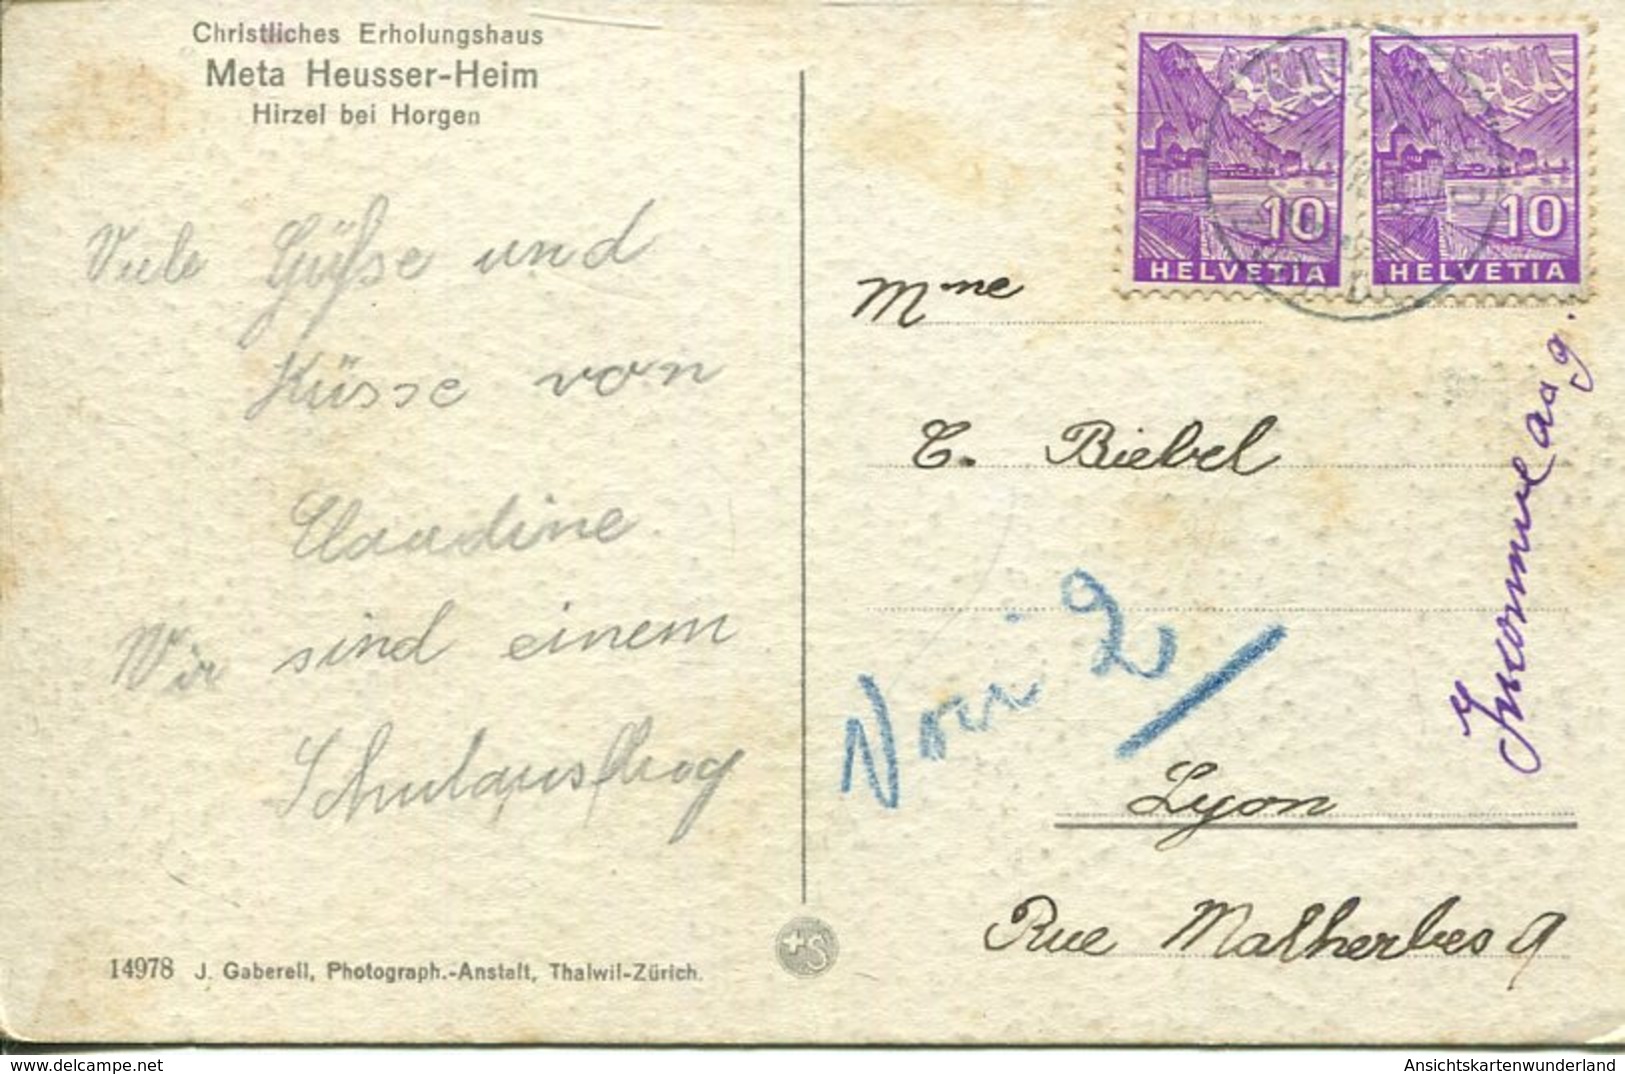 Christliches Erholungshaus
Meta Heusser-Heim
Hirzel bei Horgen
Viele Grüsse und
Küsse von
Claudine
Wir sind einem
Schulausflug
14978 J. Gaberell, Photograph.-Anstalt, Thalwil-Zürich.
10
HELVETIA
10
HELVETIA
Mme
C. Biebel
Lyon
Rue Malherbes 9
Voir 2
Inconnu au 9.
www.delcampe.net
Ansichtskartenwunderland